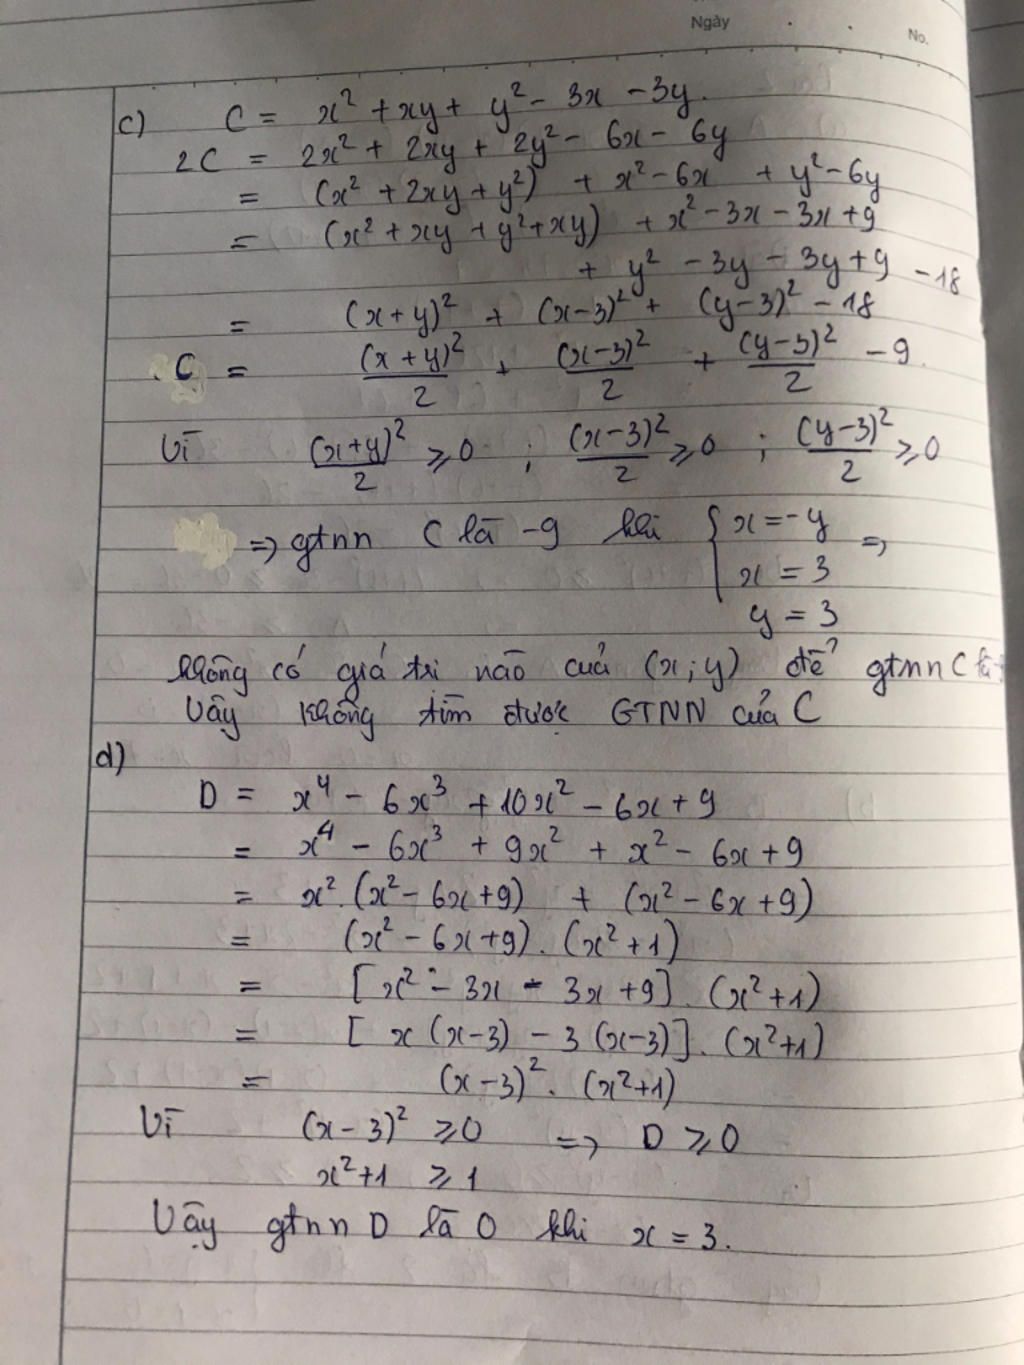 Ngày
No.
c) C = x² + xy + y² - 3x - 3y.
2C = 2x² + 2xy + 2y² - 6x - 6y
= (x² + 2xy + y²) + x² - 6x + y² - 6y
= (x² + xy + y² + xy) + x² - 3x - 3x + 9
+ y² - 3y - 3y + 9 - 18
= (x + y)² + (x - 3)² + (y - 3)² - 18
C = (x + y)²/2 + (x - 3)²/2 + (y - 3)²/2 - 9.
Vì (x + y)²/2 ⩾ 0 ; (x - 3)²/2 ⩾ 0 ; (y - 3)²/2 ⩾ 0
=> gtnn C là -9 khi { x = -y =>
x = 3
y = 3
không có giá trị nào của (x; y) để gtnn C là
Vậy không tìm được GTNN của C
d)
D = x⁴ - 6x³ + 10x² - 6x + 9
= x⁴ - 6x³ + 9x² + x² - 6x + 9
= x².(x² - 6x + 9) + (x² - 6x + 9)
= (x² - 6x + 9).(x² + 1)
= [x² - 3x - 3x + 9].(x² + 1)
= [x(x - 3) - 3(x - 3)].(x² + 1)
= (x - 3)².(x² + 1)
Vì (x - 3)² ⩾ 0 => D ⩾ 0
x² + 1 ⩾ 1
Vậy gtnn D là 0 khi x = 3.